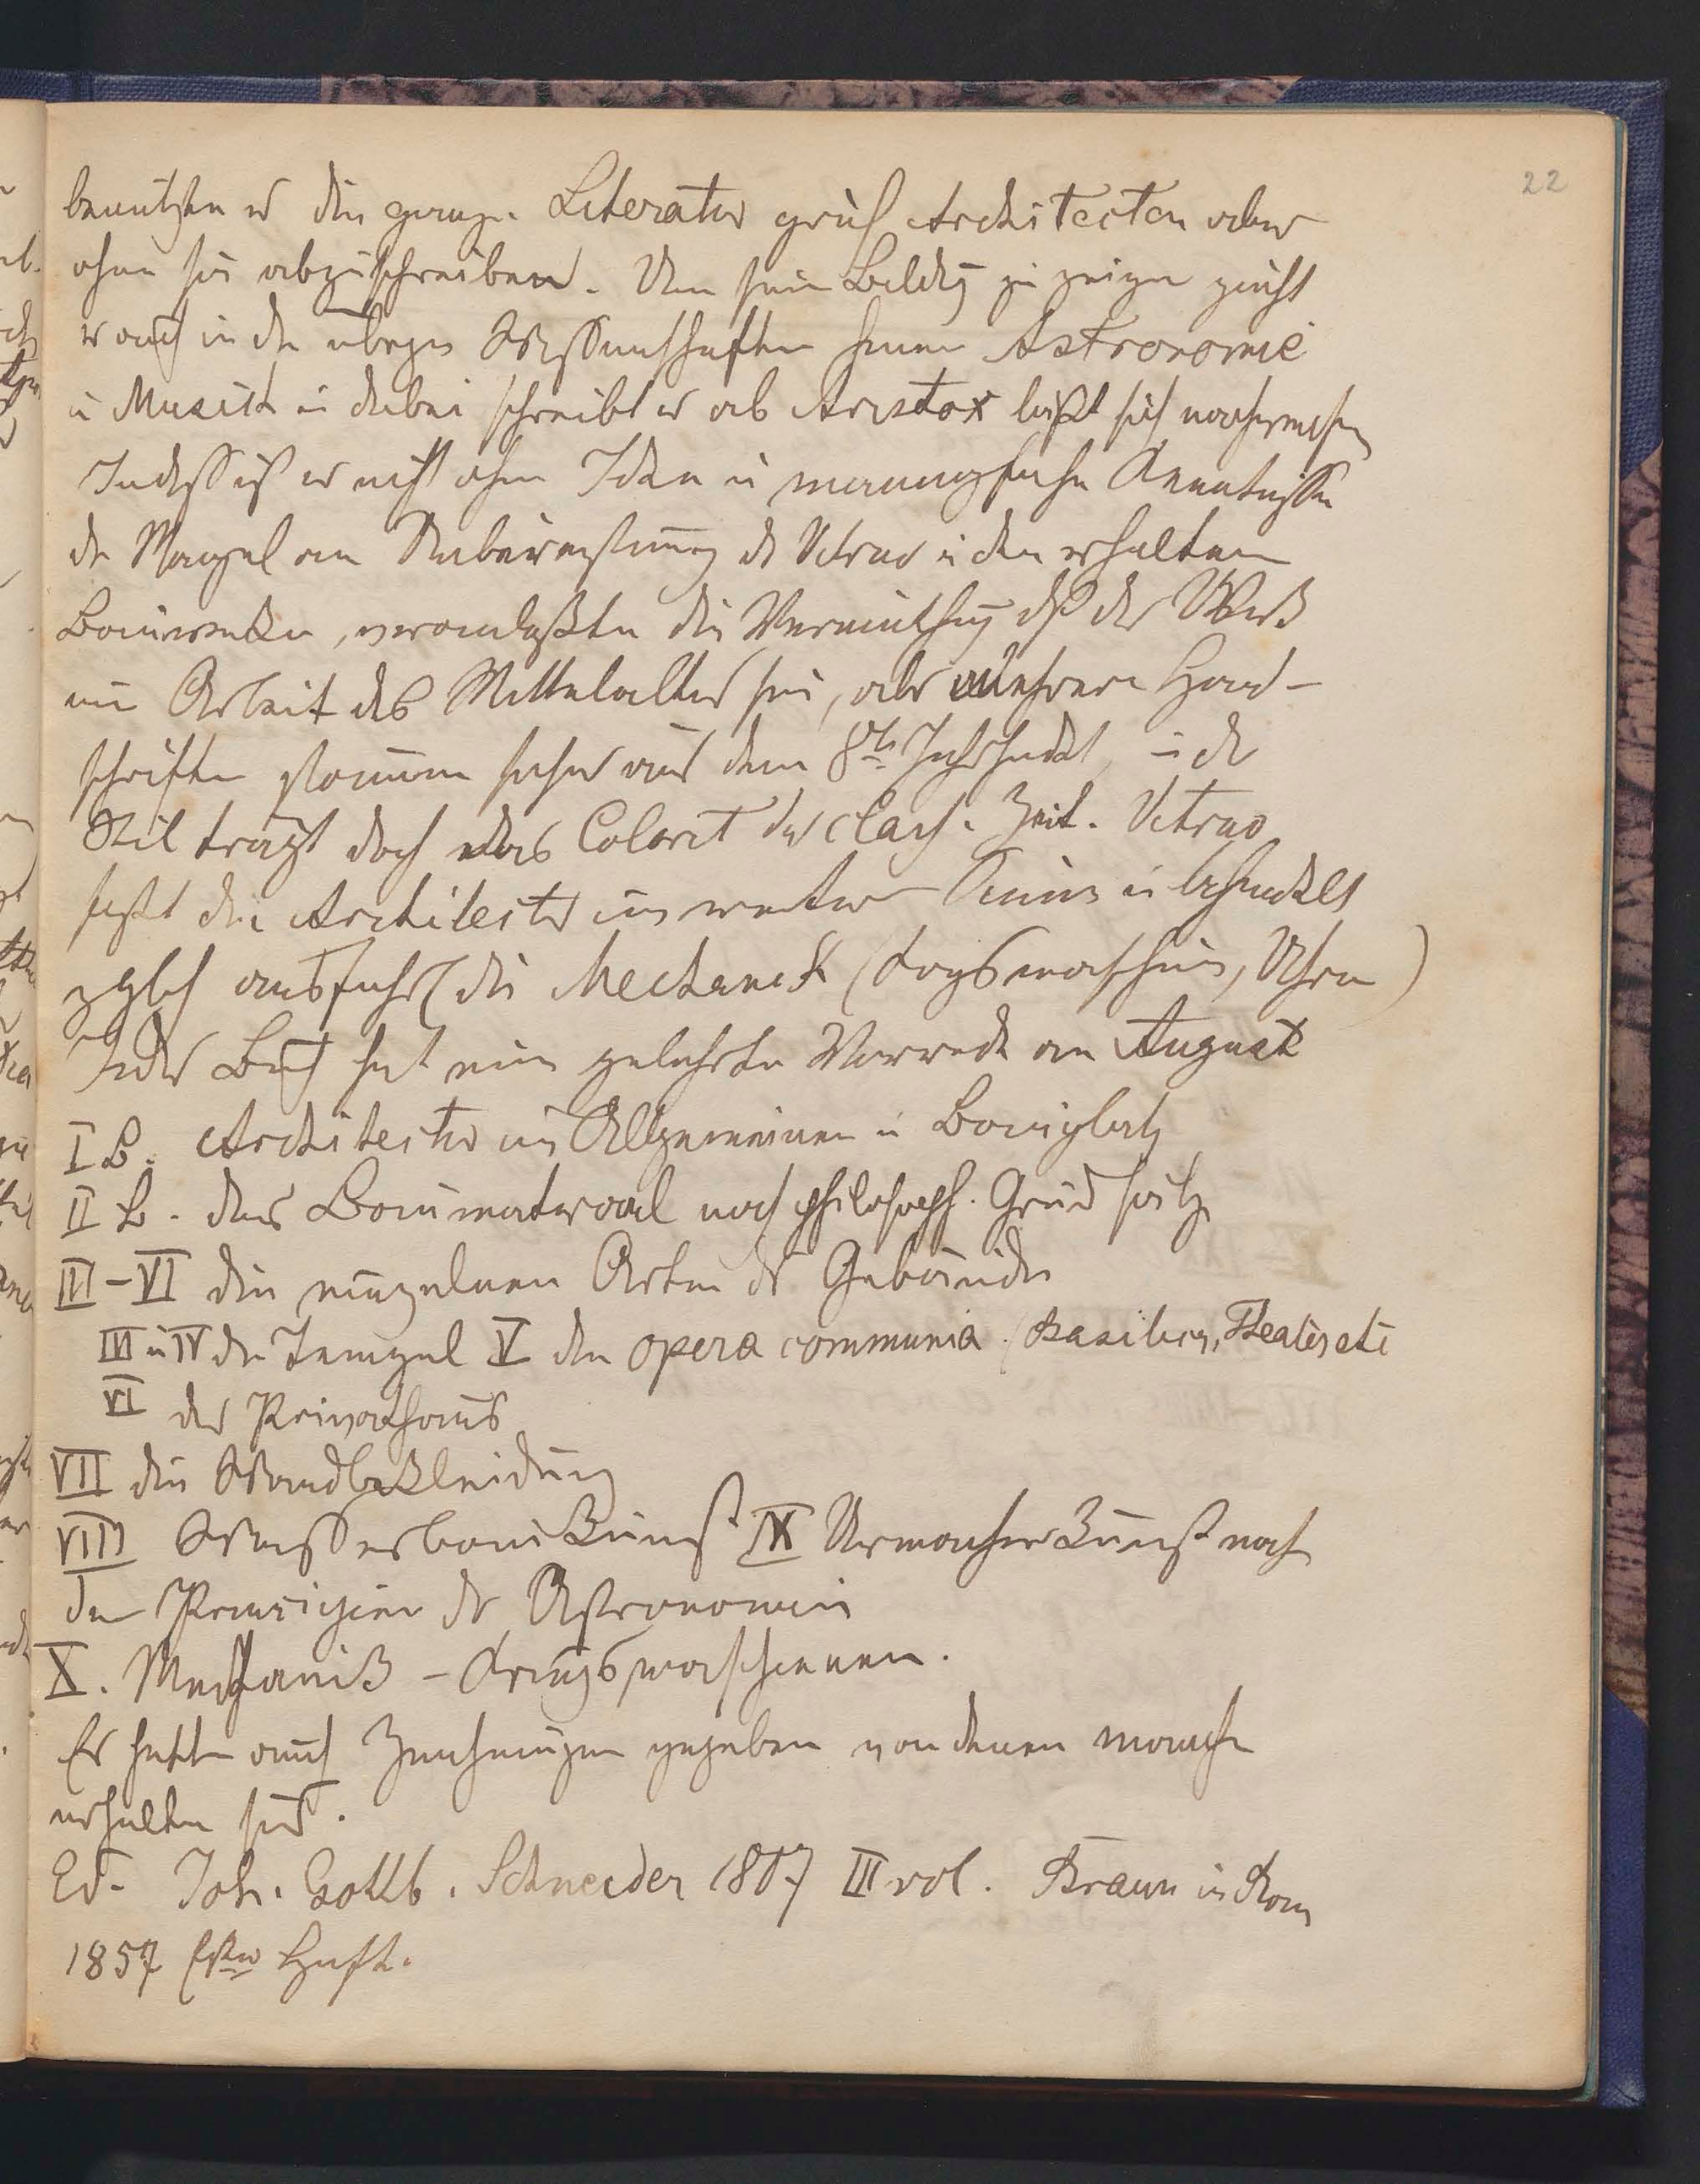 22
benutzen er die ganze Literatur griech Architecten aber
ohne sie abzuschreiben. Um seine Bildg zu zeigen zieht
er auch in den übrigen Wissenschaften herum Astronomie
u Musick u dabei schreibt er ab Aristox läßt sich nachweisen
Indeß ist er nicht ohne Ideen u mannigfache Kenntnisse
der Mangel an Uebereinstimung des Vitruv u den erhaltenen
Bauwerken, veranlaßten die Vermuthug dß das Werk
eine Arbeit des Mittelalters sei, aber mehrere Hand-
schriften stammen schon aus dem 8ten Jahrhundert, u der
Stil trägt doch das Colorit der class. Zeit. Vitruv
faßt die Architectur im weiteren Sinne u behandelt
zgleich ausführl die Mechanik (Krigsmaschinen, Uhren)
Jedes Buch hat eine gelehrte Vorrede an August
I B. Architectur im Allgemeinen u Bauplatz
II B. das Baumaterial nach philosoph. Grundsätze
III-VI die einzelnen Arten der Gebäude
III u IV der Tempel V den opera communia (Basiliken, Theater etc
VI das Privathaus
VII die Wandbekleidung
VIII Wasserbaukunst IX Urmacherkunst nach
den Prinzipien der Astronomie
X. Mechanik - Kriegsmaschinen.
Er hatte auch Zeichnungen gegeben von denen manche
erhalten sind.
Ed. Joh. Gottlb. Schneider 1807 III vol. Braun in Rom
1857 Erstes Heft.